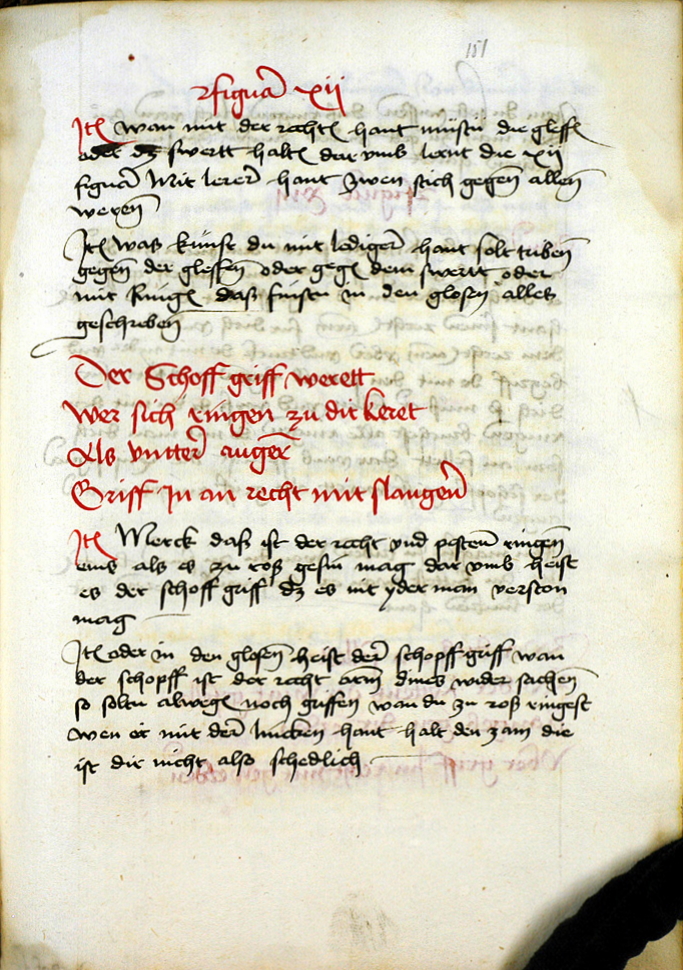 151
figura xii
Itē wan mit der rechtē hant mustu die gleffē
oder dz swertt haltē dar vmb lernt die xii
figura Mit lerer hant zwen stich gegen allen
weren
Itē was kunst du mit lediger hant solt triben
gegen der gleffen oder gegē dem swertt oder
mit Ringē daß finstu in den glosen alles
geschriben
Der Schoff griff werett
wer sich ringen zu dir keret
Als vntter augen
Griff In an recht mit slaugen
Itē Merck daß ist der recht vnd pesten ringen
eins als es zu roß gesin mag dar vmb heist
es der schoff griff dz es nit yder man verston
mag
Itē oder in den glosen heist der schopff griff wan
der schopff ist der recht arm dines wider sachen
so soltu alwegē noch griffen wan du zu roß ringest
wen er mit der lincken hant halt den zam die
ist dir nicht also schedlich